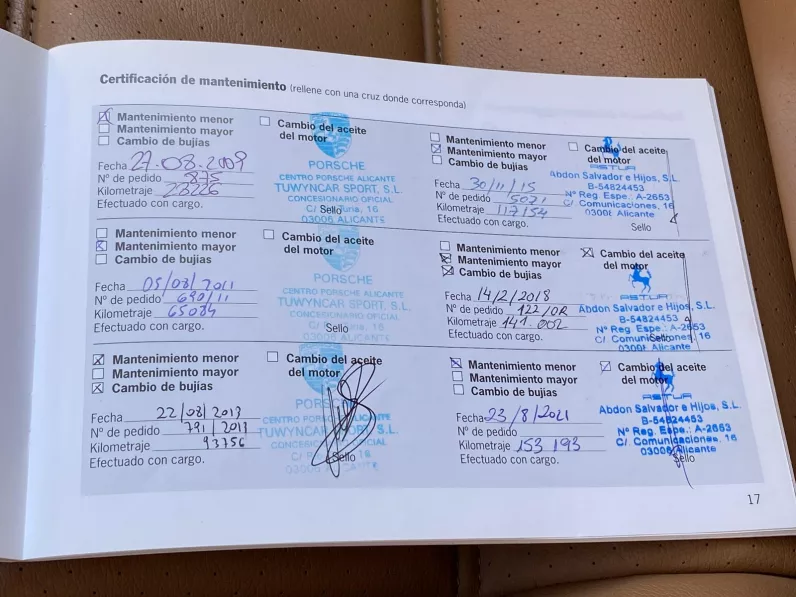 Certificación de mantenimiento (rellene con una cruz donde corresponda)
Mantenimiento menor
Mantenimiento mayor
Cambio de bujías
Cambio del aceite
del motor
Fecha 27.08.2009
Nº de pedido 875
Kilometraje
Efectuado con cargo.
PORSCHE
CENTRO PORSCHE ALICANTE
TUWYNCAR SPORT, S.L.
CONCESIONARIO OFICIAL
C/ Sello 16
03006 ALICANTE
Mantenimiento menor
Mantenimiento mayor
Cambio de bujías
Cambio del aceite
del motor
Fecha 05/08/2011
Nº de pedido 690/11
Kilometraje 65084
Efectuado con cargo.
PORSCHE
CENTRO PORSCHE ALICANTE
TUWYNCAR SPORT, S.L.
CONCESIONARIO OFICIAL
Sello 16
03006 ALICANTE
Mantenimiento menor
Mantenimiento mayor
Cambio de bujías
Cambio del aceite
del motor
Fecha 22/08/2013
Nº de pedido 791/2013
Kilometraje 93756
Efectuado con cargo.
CENTRO ALICANTE
TUWYNCAR S.L.
OFICIAL
Sello 16
03006 ALICANTE
Mantenimiento menor
Mantenimiento mayor
Cambio de bujías
Cambio del aceite
del motor
Fecha 30/11/15
Nº de pedido 5021
Kilometraje 117154
Efectuado con cargo.
ASTUR
Abdon Salvador e Hijos, S.L.
B-54824453
Nº Reg. Espe.: A-2653
C/ Comunicaciones, 16
03008 Alicante
Sello
Mantenimiento menor
Mantenimiento mayor
Cambio de bujías
Cambio del aceite
del motor
Fecha 14/2/2018
Nº de pedido 122/OR
Kilometraje 141.002
Efectuado con cargo.
ASTUR
Abdon Salvador e Hijos, S.L.
B-54824453
Nº Reg. Espe.: A-2653
C/ Comunicaciones, 16
Sello
03008 Alicante
Mantenimiento menor
Mantenimiento mayor
Cambio de bujías
Cambio del aceite
del motor
Fecha 23/8/2021
Nº de pedido
Kilometraje 153 193
Efectuado con cargo.
ASTUR
Abdon Salvador e Hijos, S.L.
B-54824453
Nº Reg. Espe.: A-2653
C/ Comunicaciones, 16
03008 Alicante
Sello
17